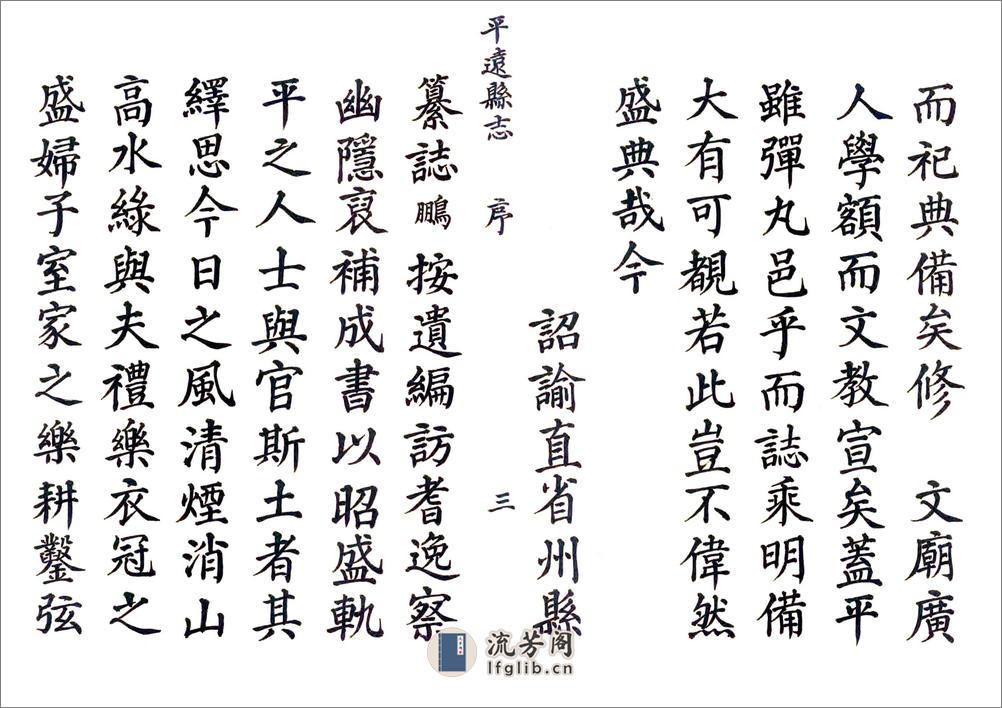 而祀典備矣修　文廟廣
人學額而文教宣矣蓋平
雖彈丸邑乎而誌乘明備
大有可覩若此豈不偉然
盛典哉今
詔諭直省州縣
平遠縣志　序　三
纂誌鵬按遺編訪耆逸察
幽隱裒補成書以昭盛軌
平之人士與官斯土者其
繹思今日之風清煙消山
高水綠與夫禮樂衣冠之
盛婦子室家之樂耕鑿弦
流芳阁
lfglib.cn